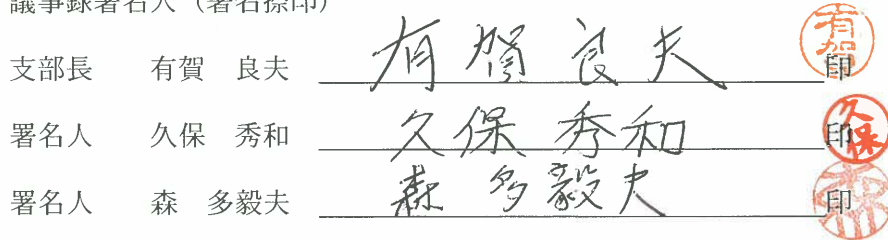 議事録署名人（署名捺印）
支部長 有賀 良夫 有賀良夫 印 有賀
署名人 久保 秀和 久保秀和 印 久保
署名人 森 多毅夫 森多毅夫 印 森